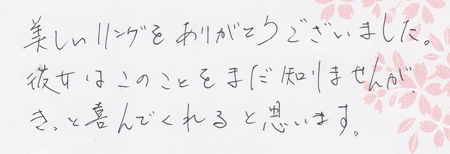 美しいリングをありがとうございました。
彼女はこのことをまだ知りませんが、
きっと喜んでくれると思います。